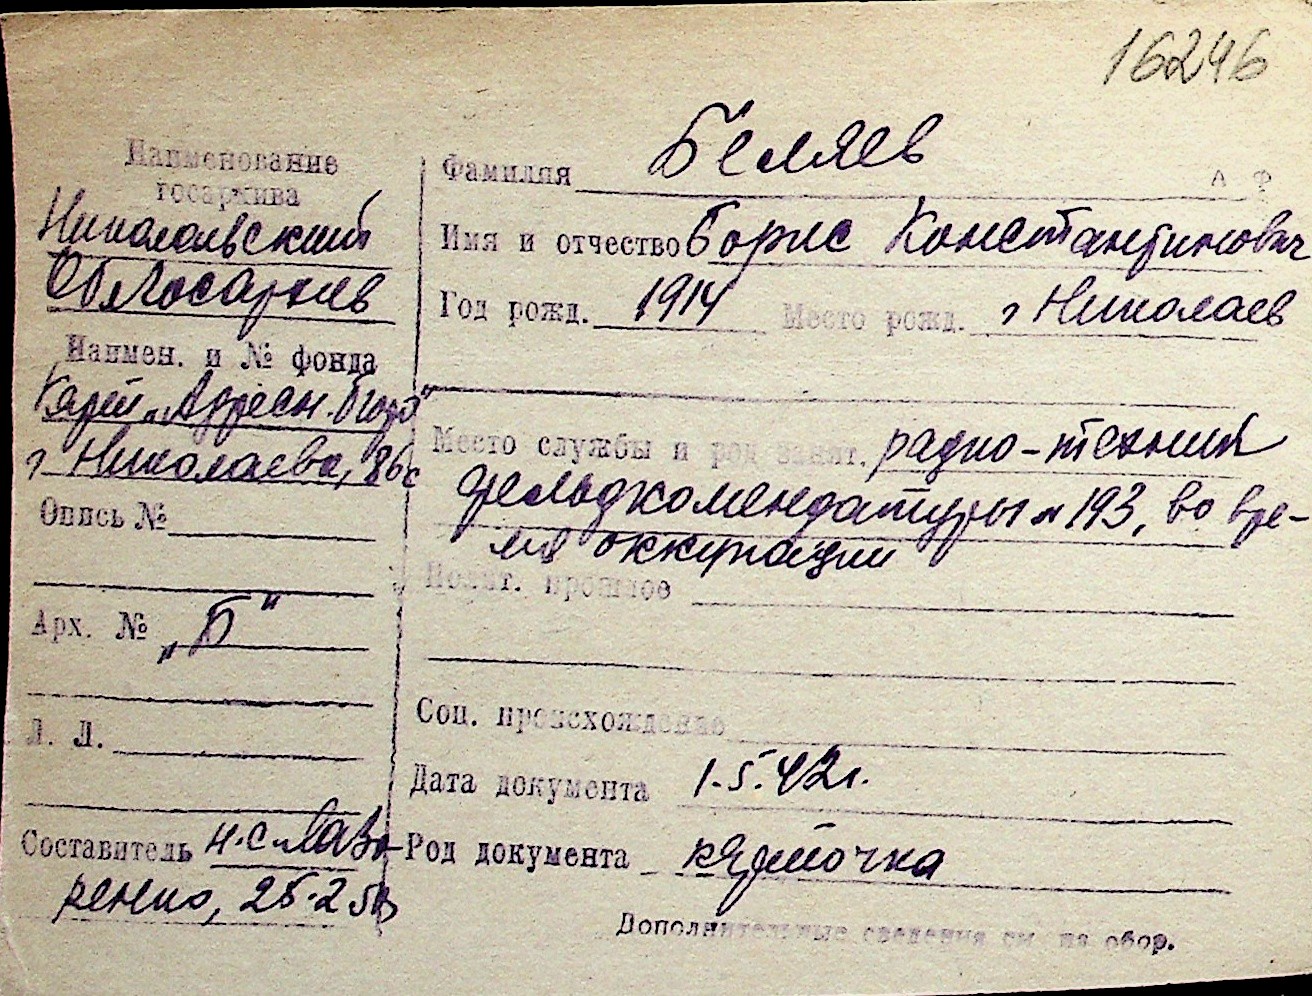 16246
Наименование
госархива
Николаевский
Облгосархив
Наимен. и № фонда
Карт „Адресн. бюро"
г Николаева, 86с
Опись №
Арх. № „Б"
Л. Л.
Составитель Н.С. Лавре-
ренко, 25.2.5
Фамилия Беляев
А Ф
Имя и отчество Борис Константинович
Год рожд. 1914 Место рожд. г Николаев
Место службы и род занят. радио-техник
фельдкомендатуры № 193, во вре-
мя оккупации
Полит. прошлое
Соц. происхождение
Дата документа 1.5.42г.
Род документа карточка
Дополнительные сведения см. на обор.